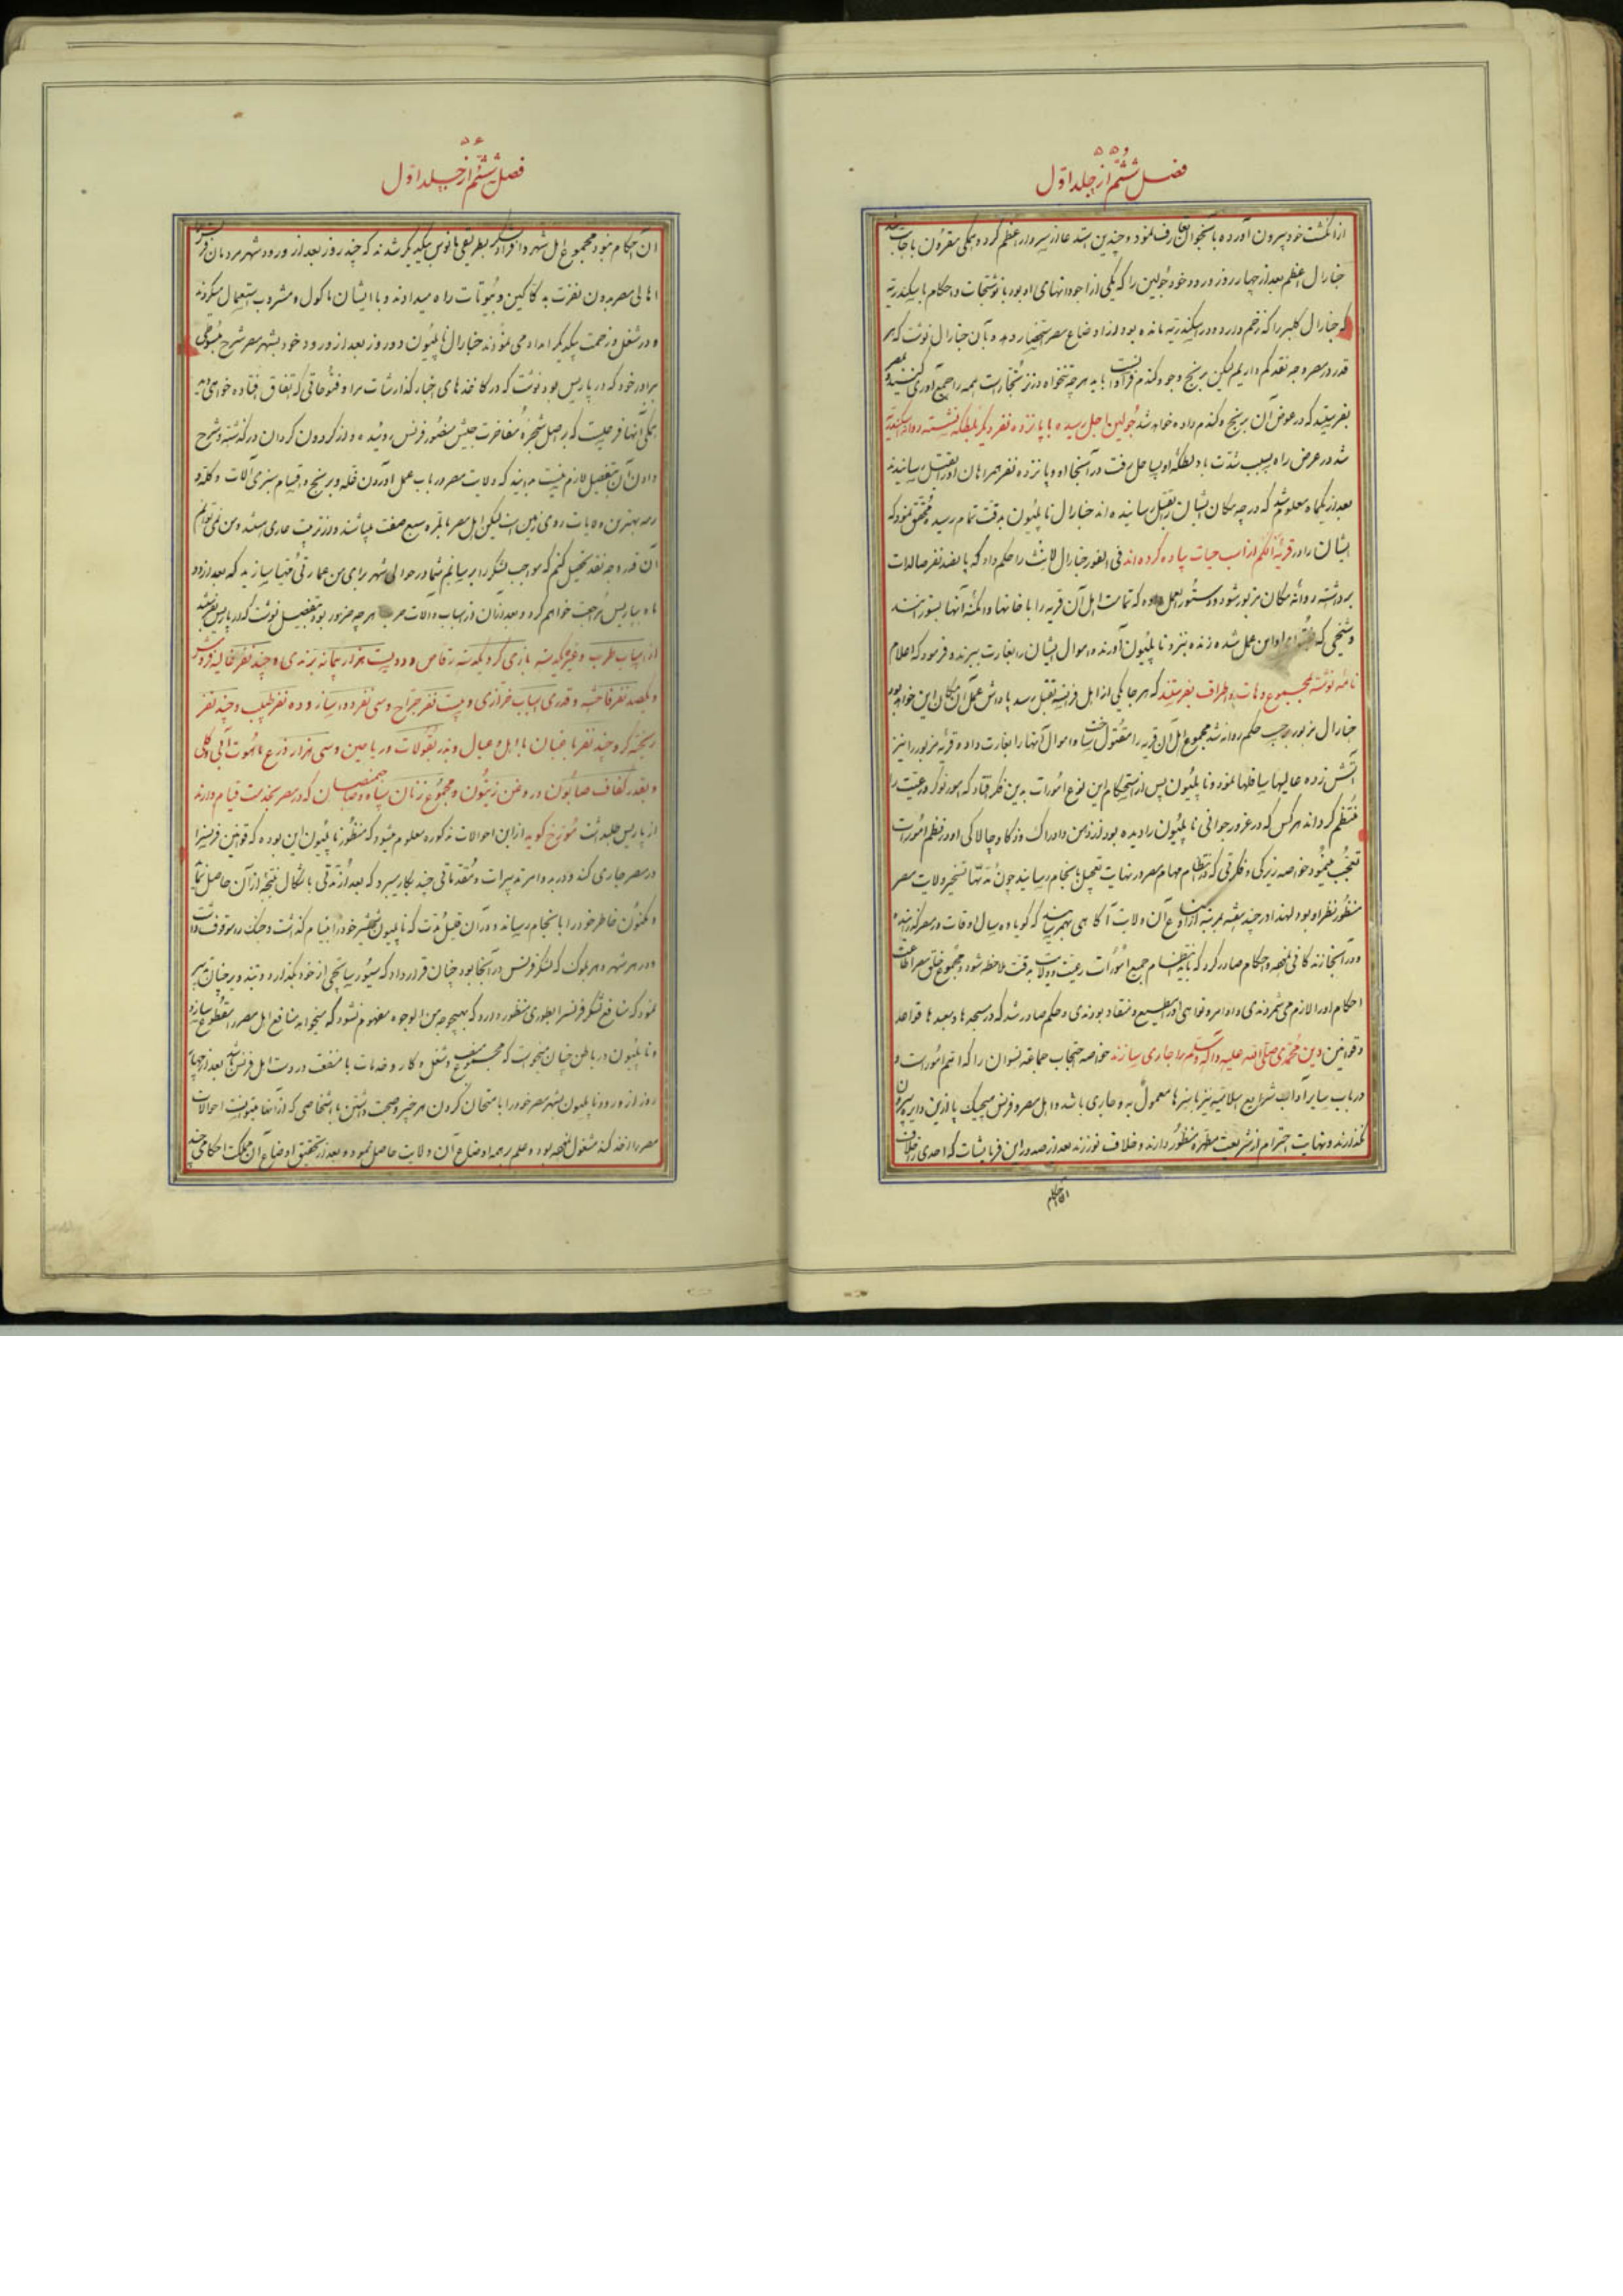 ۵۵
فصل ششم از جلد اول
از انگشت خود بیرون آورده با شیخ تعارف نمود و چندین استدعا از سردار اعظم کرده همگی مقرون باجابت شد
جنارال اعظم بعد از چهار روز ورود خود جولین را که یکی از اجودانهای او بود با نوشتجات و احکام باسکندریه
که جنارال کلبر را که زخم دارد و در اسکندریه مانده بود از اوضاع مصر استحضار دهد و بآن جنارال نوشت که هر
قدر در مصر وجه نقد کم داریم لیکن برنج و جو و گندم فراوان است باید هر چه تنخواه در نزد تجار است همه را جمع آوری کنید و بمصر
بفرستید که در عوض آن برنج و گندم داده خواهد شد جولین اجل رسیده با پانزده نفر دیگر بغلطکه نشسته روانه اسکندریه
شد در عرض راه بسبب شدت باد غلطکه او بساحل رفت در آنجا او و پانزده نفر همراهان او را بقتل رسانیدند
بعد از یکماه معلوم شد که در چه مکان ایشان را بقتل رسانیده‌اند جنارال ناپلیون بدقت تمام رسیده محقق نمود که
ایشان را در قریه القم از اسب حیات پیاده کرده‌اند فی الفور جنارال لانث را حکم داد که پانصد نفر صالدات
برداشته روانه مکان مزبور شود و دستورالعمل داد که تمامت اهل آن قریه را با خانها و امکنه آنها بسوزانند
و شیخی که بفتوای او این عمل شده زنده بنزد ناپلیون آورند و اموال ایشان را بغارت ببرند و فرمود که اعلام
نامه نوشته بمجموع دهات و اطراف بفرستند که هر جا یکی از اهل فرانسه بقتل رسد پاداش عمل آن مکان این خواهد بود
جنارال مزبور بر حسب حکم روانه شد مجموع اهل آن قریه را مقتول ساخت و اموال آنها را بغارت داد و قریه مزبور را نیز
آتش زده عالیها سافلها نمود و ناپلیون پس از استحکام این نوع امورات بدین فکر افتاد که امور نوکر و رعیت را
منتظم گرداند هر کس که در غرور جوانی ناپلیون را دیده بود از ذهن و ادراک و ذکا و چالاکی او در نظم امورات
تعجب مینمود خواصه زیرکی و فکرتی که در انتظام مهام مصر در نهایت تعجیل بانجام رسانید چون مدتها تسخیر ولایت مصر
منظور نظر او بود لهذا در چند هفته بمرتبه از اوضاع آن ولایت آگاهی بهم رسانید که گویا ده سال اوقات در مصر گذرانیده
و در آنجا زندگانی نموده و احکام صادر کرد که باید انتظام جمیع امورات رعیت و ولایت بدقت ملاحظه شود و مجموع خلق مصر اطاعت
احکام او را لازم می شمردندی و اوامر و نواهی او را مطیع و منقاد بودندی و حکم صادر شد که در مسجدها و معبدها قواعد
و قوانین دین محمدی صلی الله علیه و آله و سلم را جاری سازند خواصه احتجاب جماعه نسوان را که اهم امورات است و
در باب سایر آداب شرایع اسلامیه نیز باسرها معمول به و جاری باشد و اهل مصر و فرنس هیچیک پا ازین دایره بیرون
نگذارند و نهایت احترام از شریعت مطهره منظور دارند و خلاف نورزند بعد از صدور این فرمایشات که احدی را خلاف
احکام
۵۶
فصل ششم از جلد اول
آن احکام نبود مجموع اهل شهر و افراد لشکر بطریقی مانوس بیکدیگر شدند که چند روز بعد از ورود شهر مردمان فرنس را
اهالی مصر بدون نفرت به دکاکین و بیوتات راه میدادند و با ایشان ماکول و مشروب استعمال میکردند
و در شغل و زحمت یکدیگر امداد می نمودند جنارال ناپلیون دو روز بعد از ورود خود بشهر مصر شرح مبسوطی
برادر خود که در پاریس بود نوشت که در کاغذهای اخبار گذارشات مرا و فتوحاتی که اتفاق افتاده خواهی دید
همگی آنها فرحیست که بر اصل شجره مفاخرت جیش منصور فرنس روئیده و از کردون کردان در گذشته و شرح
دادن آن بتفصیل لازم نیست بدانید که ولایت مصر در باب عمل آوردن غله و برنج و اقسام سبزی آلات و گله و
رمه بهترین ولایات روی زمین است لیکن اهل مصر بالمره سبع صفت میباشند و از تربیت عاری هستند و من نمی توانم
آن قدر وجه نقد تحصیل کنم که مواجب لشکر را برسانم شما در حوالی شهر برای من عمارتی مهیا سازید که بعد از دو
ماه بپاریس مراجعت خواهم کرد و بعد از آن از اسباب و آلات حرب هر چه ضرور بود بتفصیل نوشت که از پاریس بفرستند
از اسباب طرب و غیره یکدسته بازی گر و یکدسته رقاص و دویست هزار پیمانه برندی و چند نفر غالیه فروش
و یکصد نفر فاحشه و قدری اسباب خرازی و بیست نفر جراح و سی نفر دوا ساز و ده نفر طبیب و چند نفر
ریخته گر و چند نفر باغبان با اهل و عیال و بذر بقولات و ریاحین و سی هزار ذرع ماهوت آبی و گلی
و بقدر کفاف صابون و روغن زیتون و مجموع زنان سپاه و صاحبمنصبان که در مصر بخدمت قیام دارند
از پاریس طلب داشت مورخ گوید از این احوالات مذکوره معلوم میشود که منظور ناپلیون این بوده که قوانین فرنس را
در مصر جاری کند و در بدو امر تدبیرات و مقدماتی چند بکار میبرد که بعد از مدتی باشکال نتیجه از آن حاصل نماید
و مکنون خاطر خود را بانجام رساند و در آن قلیل مدت که ناپلیون شمشیر خود را به نیام گذاشت و جنگ را موقوف داشت
و در هر شهر و هر بلوک که لشکر فرنس در آنجا بود چنان قرار داد که سیورسانجی از خود بگذارد و بتدبیر چنان تدبیر
نمود که منافع لشکر فرنس را بطوری منظور دارد که بهیچوجه من الوجوه مفهوم نشود که میخواهد منافع اهل مصر را مقطوع سازد و
ناپلیون در باطن چنان میخواست که مجموع صنعت و شغل و کار و خدمات با منفعت در دست اهل فرنس باشد بعد از چهار
روز از ورود ناپلیون بشهر مصر خود را با متحان کردن هر خیر و صحبت داشتن با اشخاصی که از آنها میتوانست احوالات
مصر را اخذ کند مشغول نموده بود و علم بهمه اوضاع آن ولایت حاصل نمود و بعد از تحقیق اوضاع آن مملکت احکامی چند